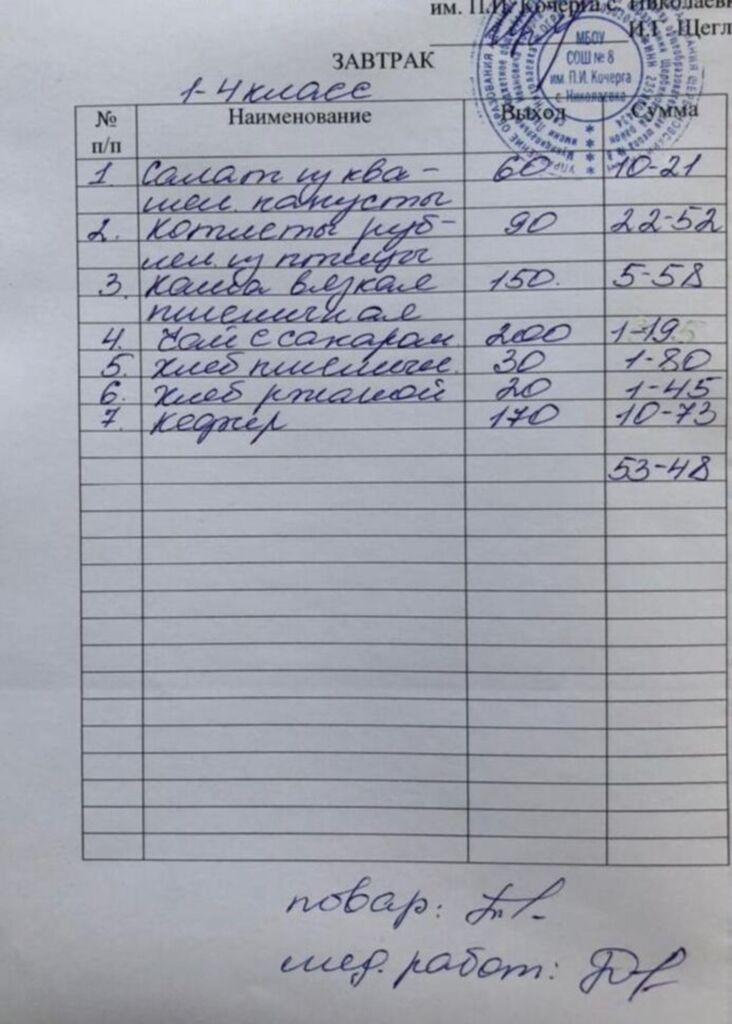 им. П.И. Кочерга с. Николаевк
И.Г. Щегл
МБОУ
СОШ № 8
им. П.И. Кочерга
с. Николаевка
ЗАВТРАК
1-4 класс
№ п/п Наименование Выход Сумма
1. Салат из ква- 60 10-21
шен. капусты
2. Котлеты руб- 90 22-52
лен. из птицы
3. Каша вязкая 150. 5-58
пшеничная
4. Чай с сахаром 200 1-19
5. Хлеб пшеничн. 30 1-80
6. Хлеб ржаной 20 1-45
7. Кефир 170 10-73
53-48
повар:
мед. работ: